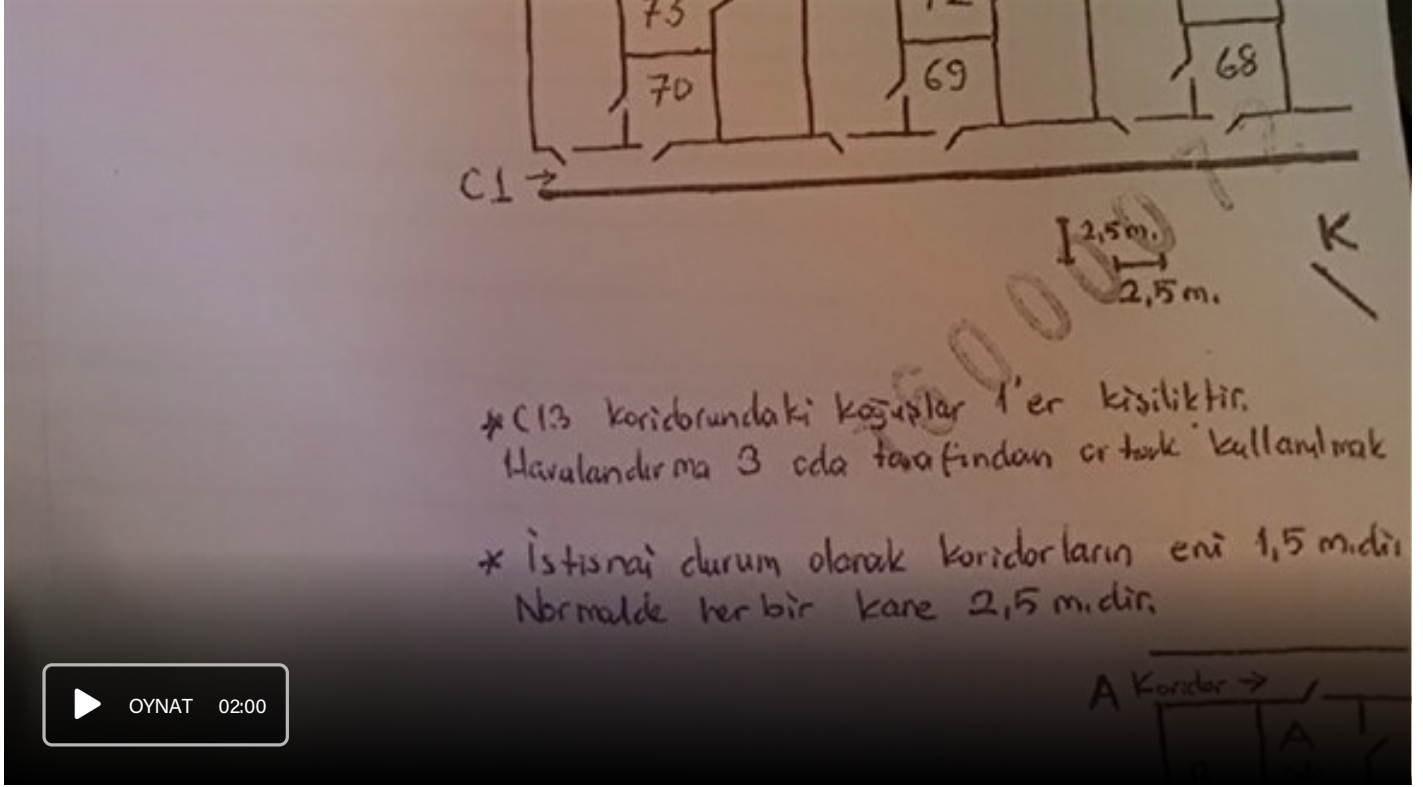 73
72
70
69
68
C1 →
2,5 m.
2,5 m.
K
* C13 koridorundaki koğuşlar 1'er kişiliktir.
Havalandırma 3 oda tarafından ortak kullanılmak
* İstisnai durum olarak koridorların eni 1,5 m.dir
Normalde her bir kare 2,5 m.dir.
A Koridor →
A
OYNAT 02:00